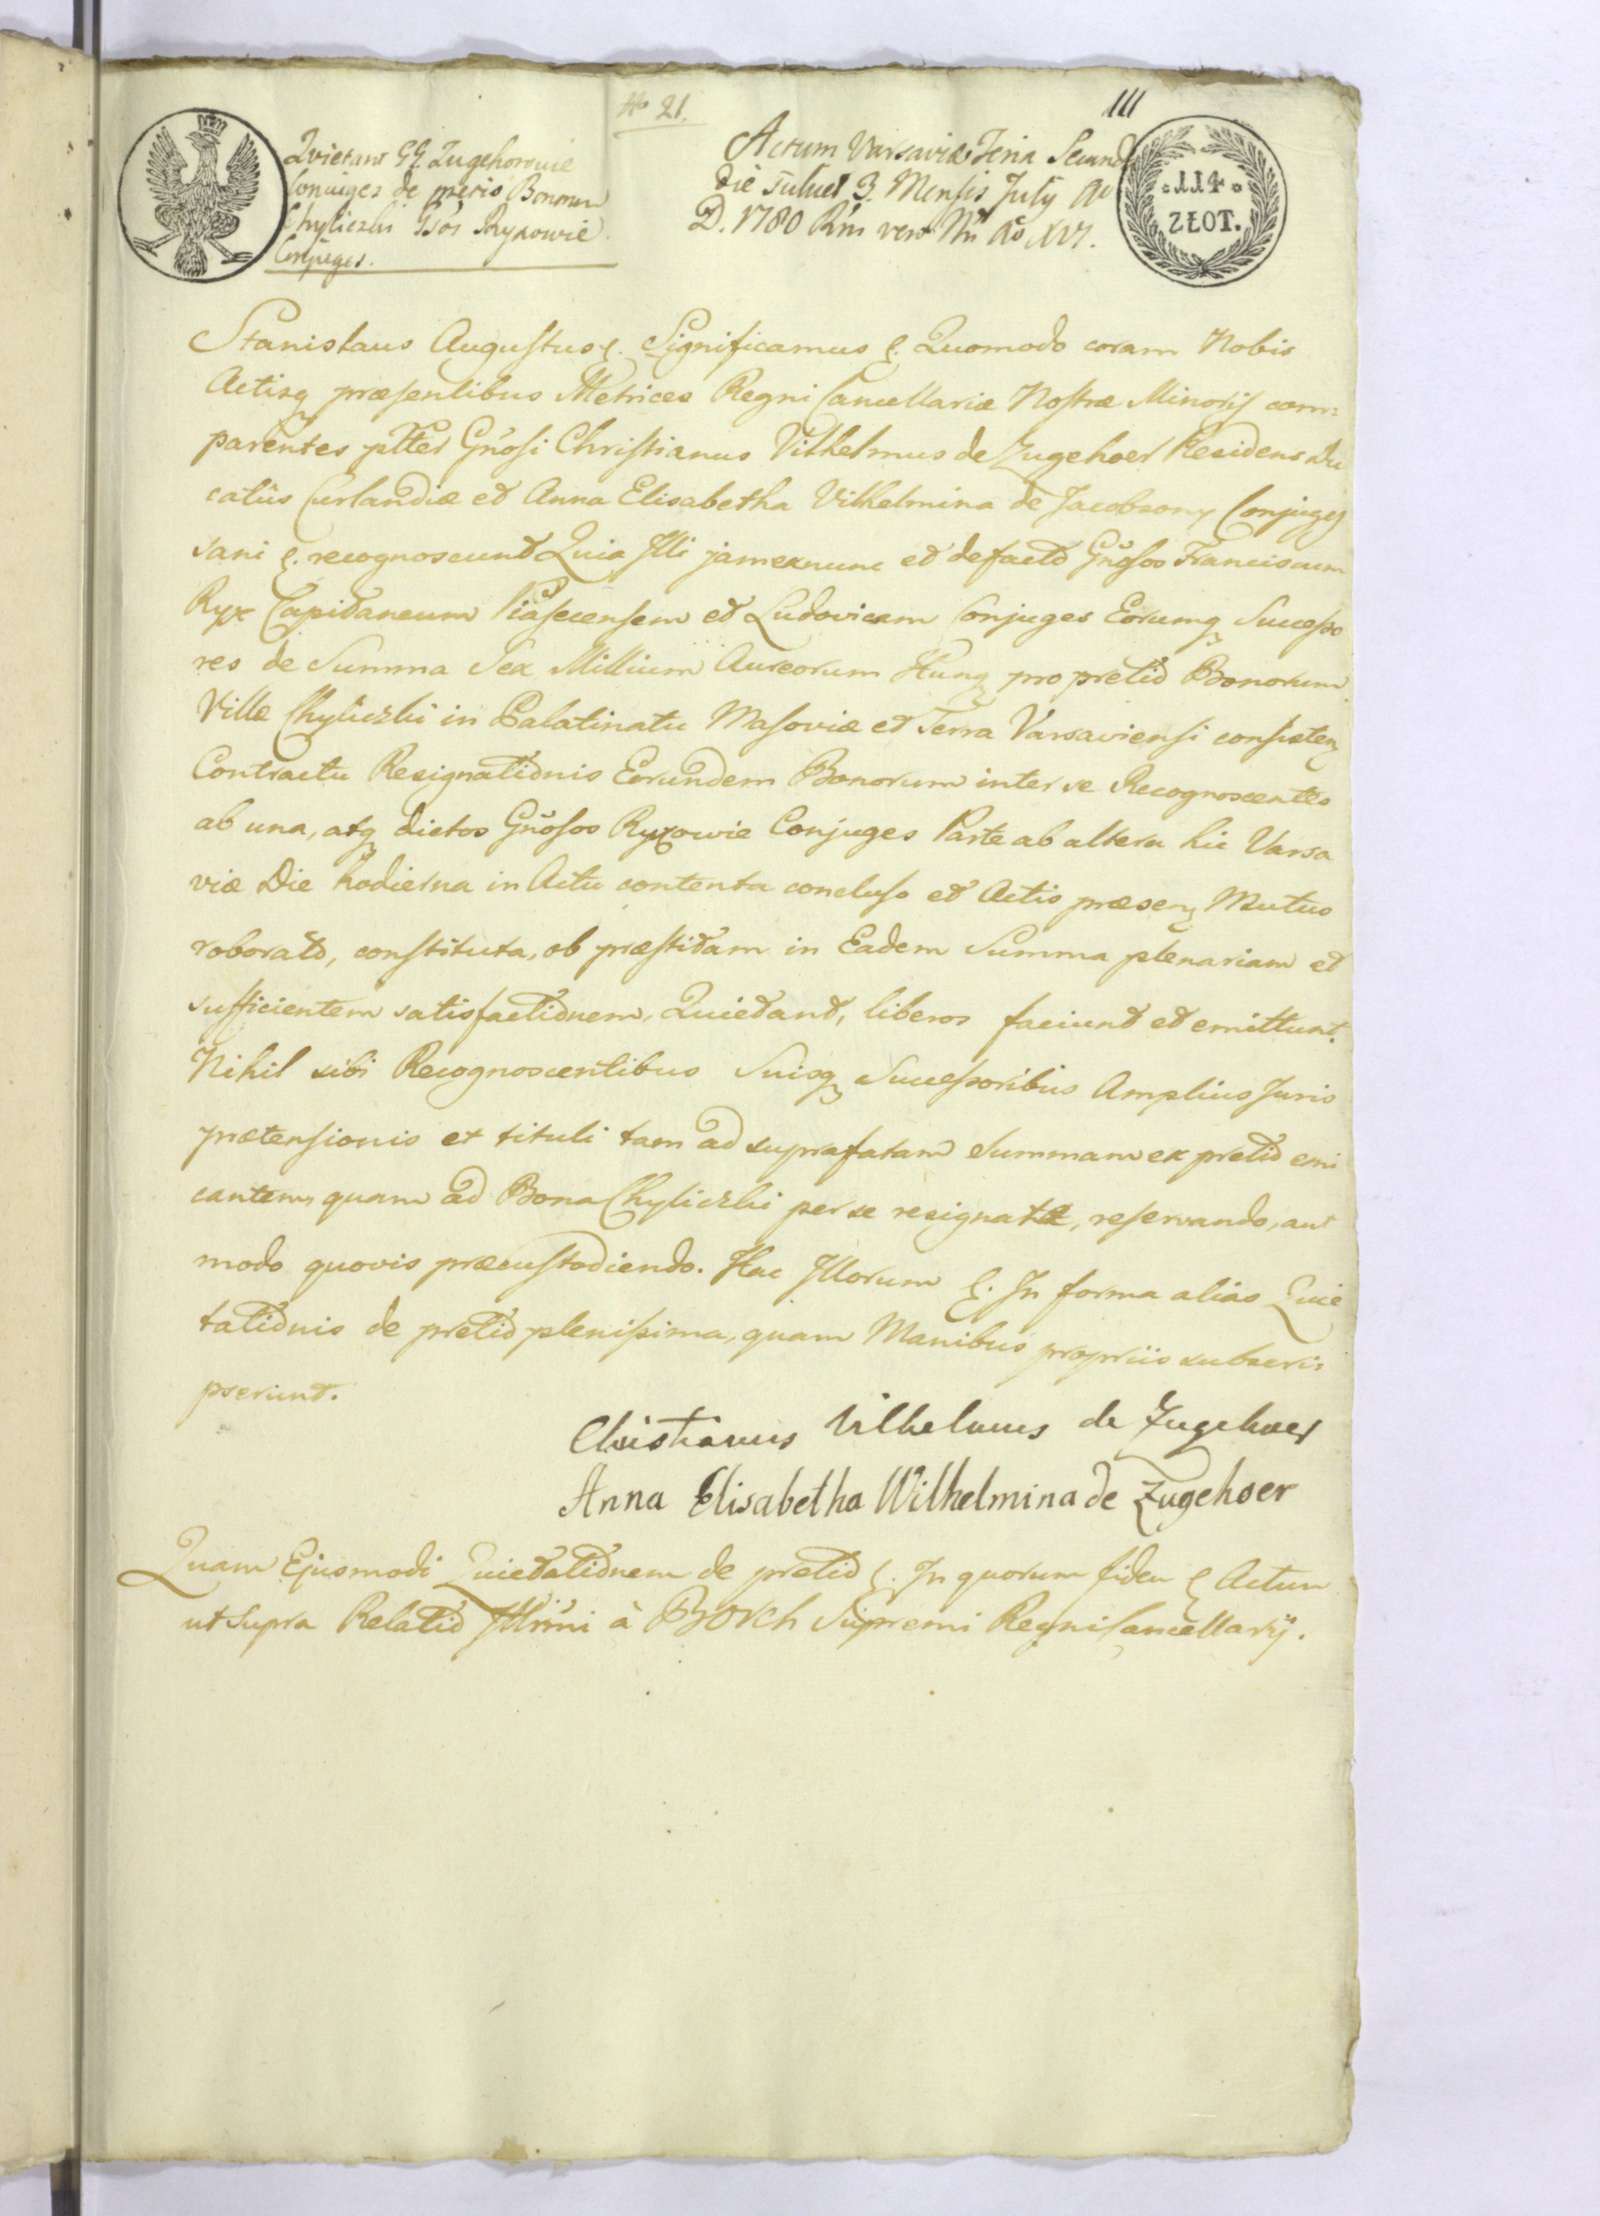 No 21.
111
Quietant GG Zugehorowie
Conjuges de pretio Bonorum
Chyliczki Gsos Ryxowie
Conjuges.
Actum Varsaviæ Feria Secund
die 3. Mensis July Ao
D. 1780 Rni vero Nri Ao XVI.
114
ZŁOT.
Stanislaus Augustus &. Significamus &. Quomodo coram Nobis
Actisq præsentibus Metrices Regni Cancellariæ Nostræ Minoris com=
parentes ptter Gnosi Christianus Vilhelmus de Zugehoer Residens Du
catûs Curlandiæ et Anna Elisabetha Vilhelmina de Jacobsony Conjuges
sani &. recognoscunt Quia Illi jamexnunc et defacto Gnosos Franciscum
Ryx Capitaneum Piasecensem et Ludovicam Conjuges Eorumq Successo
res de Summa Sex Millium Aureorum Hung pro pretio Bonorum
Villæ Chyliczki in Palatinatu Masoviæ et Terra Varsaviensi consisten
Contractu Resignationis Eorundem Bonorum inter se Recognoscentes
ab una, atq dictos Gnosos Ryxowie Conjuges Parte ab altera hic Varsa
viæ Die hodierna in Actu contenta concluso et Actis præsen Mutuo
roborato, constituta, ob præstitam in Eadem Summa plenariam et
sufficientem satisfactionem, Quietant, liberos faciunt et emittunt.
Nihil sibi Recognoscentibus Suisq Successoribus Amplius Juris
prætensionis et tituli tam ad suprafatam Summam ex pretio emi
cantem, quam ad Bona Chyliczki per se resignata, reservando, aut
modo quovis præcustodiendo. Hac Illorum &. In forma alias Quie
tationis de pretio plenissima, quam Manibus propriis subscri=
pserunt.
Christianus Vilhelmus de Zugehoer
Anna Elisabetha Wilhelmina de Zugehoer
Quam Ejusmodi Quietationem de pretio &. In quorum fidem & Actum
ut Supra Relatio Illmi à Borch Supremi Regni Cancellarij.